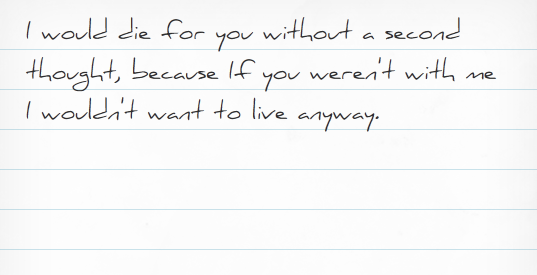 I would die for you without a second
thought, because If you weren't with me
I wouldn't want to live anyway.